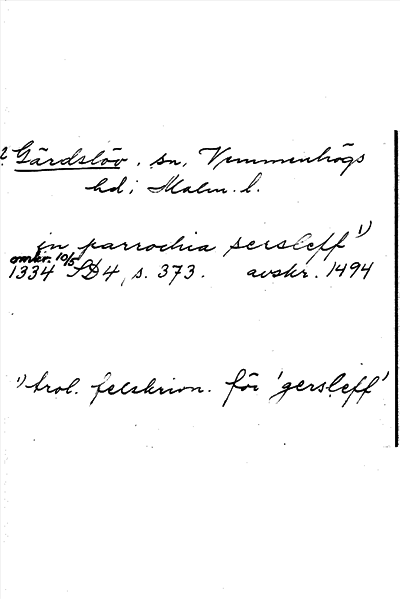 ? Gärdslöv, sn, Vemmenhögs
hd; Malm. l.
in parrochia sersleff 1)
omkr. 10/5
1334 SD 4, s. 373. avskr. 1494
1) trol. felskrivn. för 'gersleff'